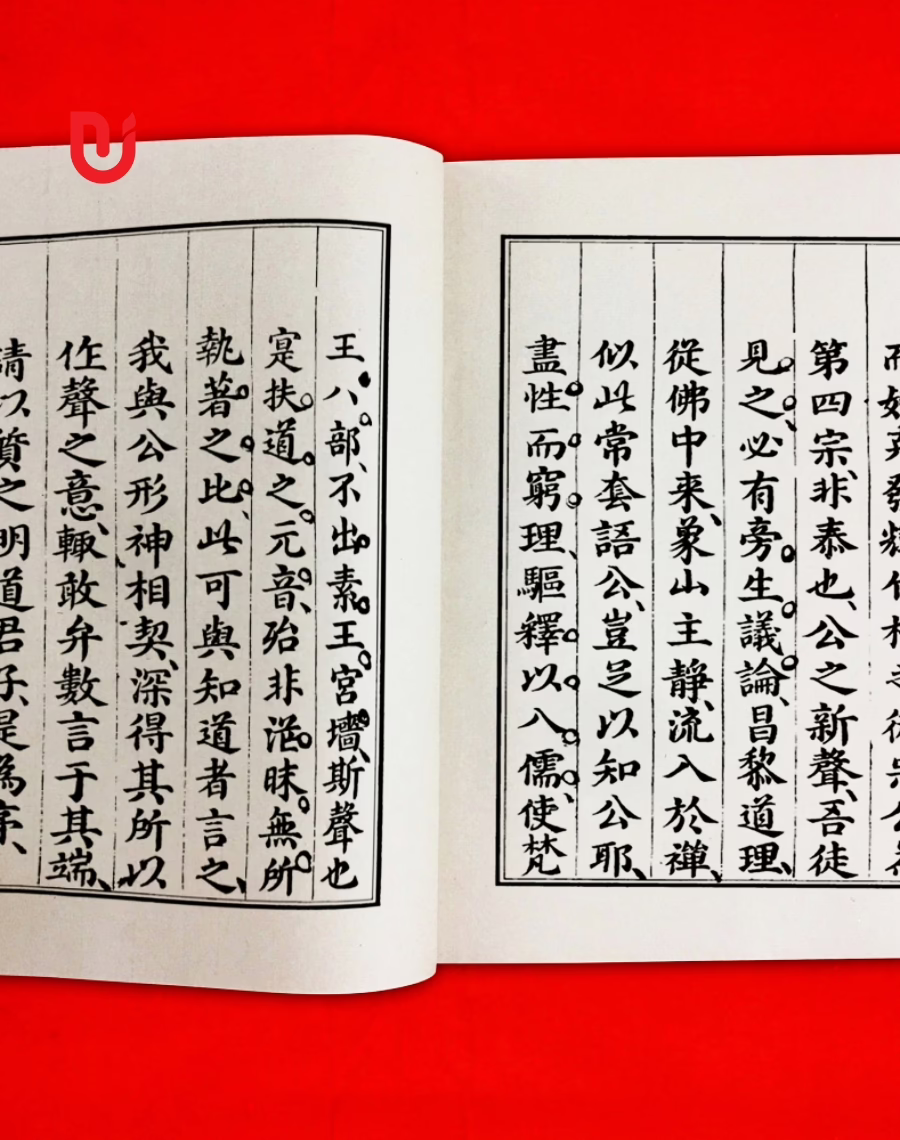 第四宗、非泰也、公之新聲、吾徒
見之、必有旁生議論、昌黎道理、
從佛中来、象山主静、流入於禪、
似此常套語公、豈足以知公耶、
盡性而窮理、驅釋以八儒、使梵
王、八部、不出素王宮墻、斯聲也
寔扶道之元音、殆非滛昧無所
執著之比、此可與知道者言之、
我與公形神相契、深得其所以
作聲之意、輙敢弁數言于其端、
請以質之明道君子、是為序、